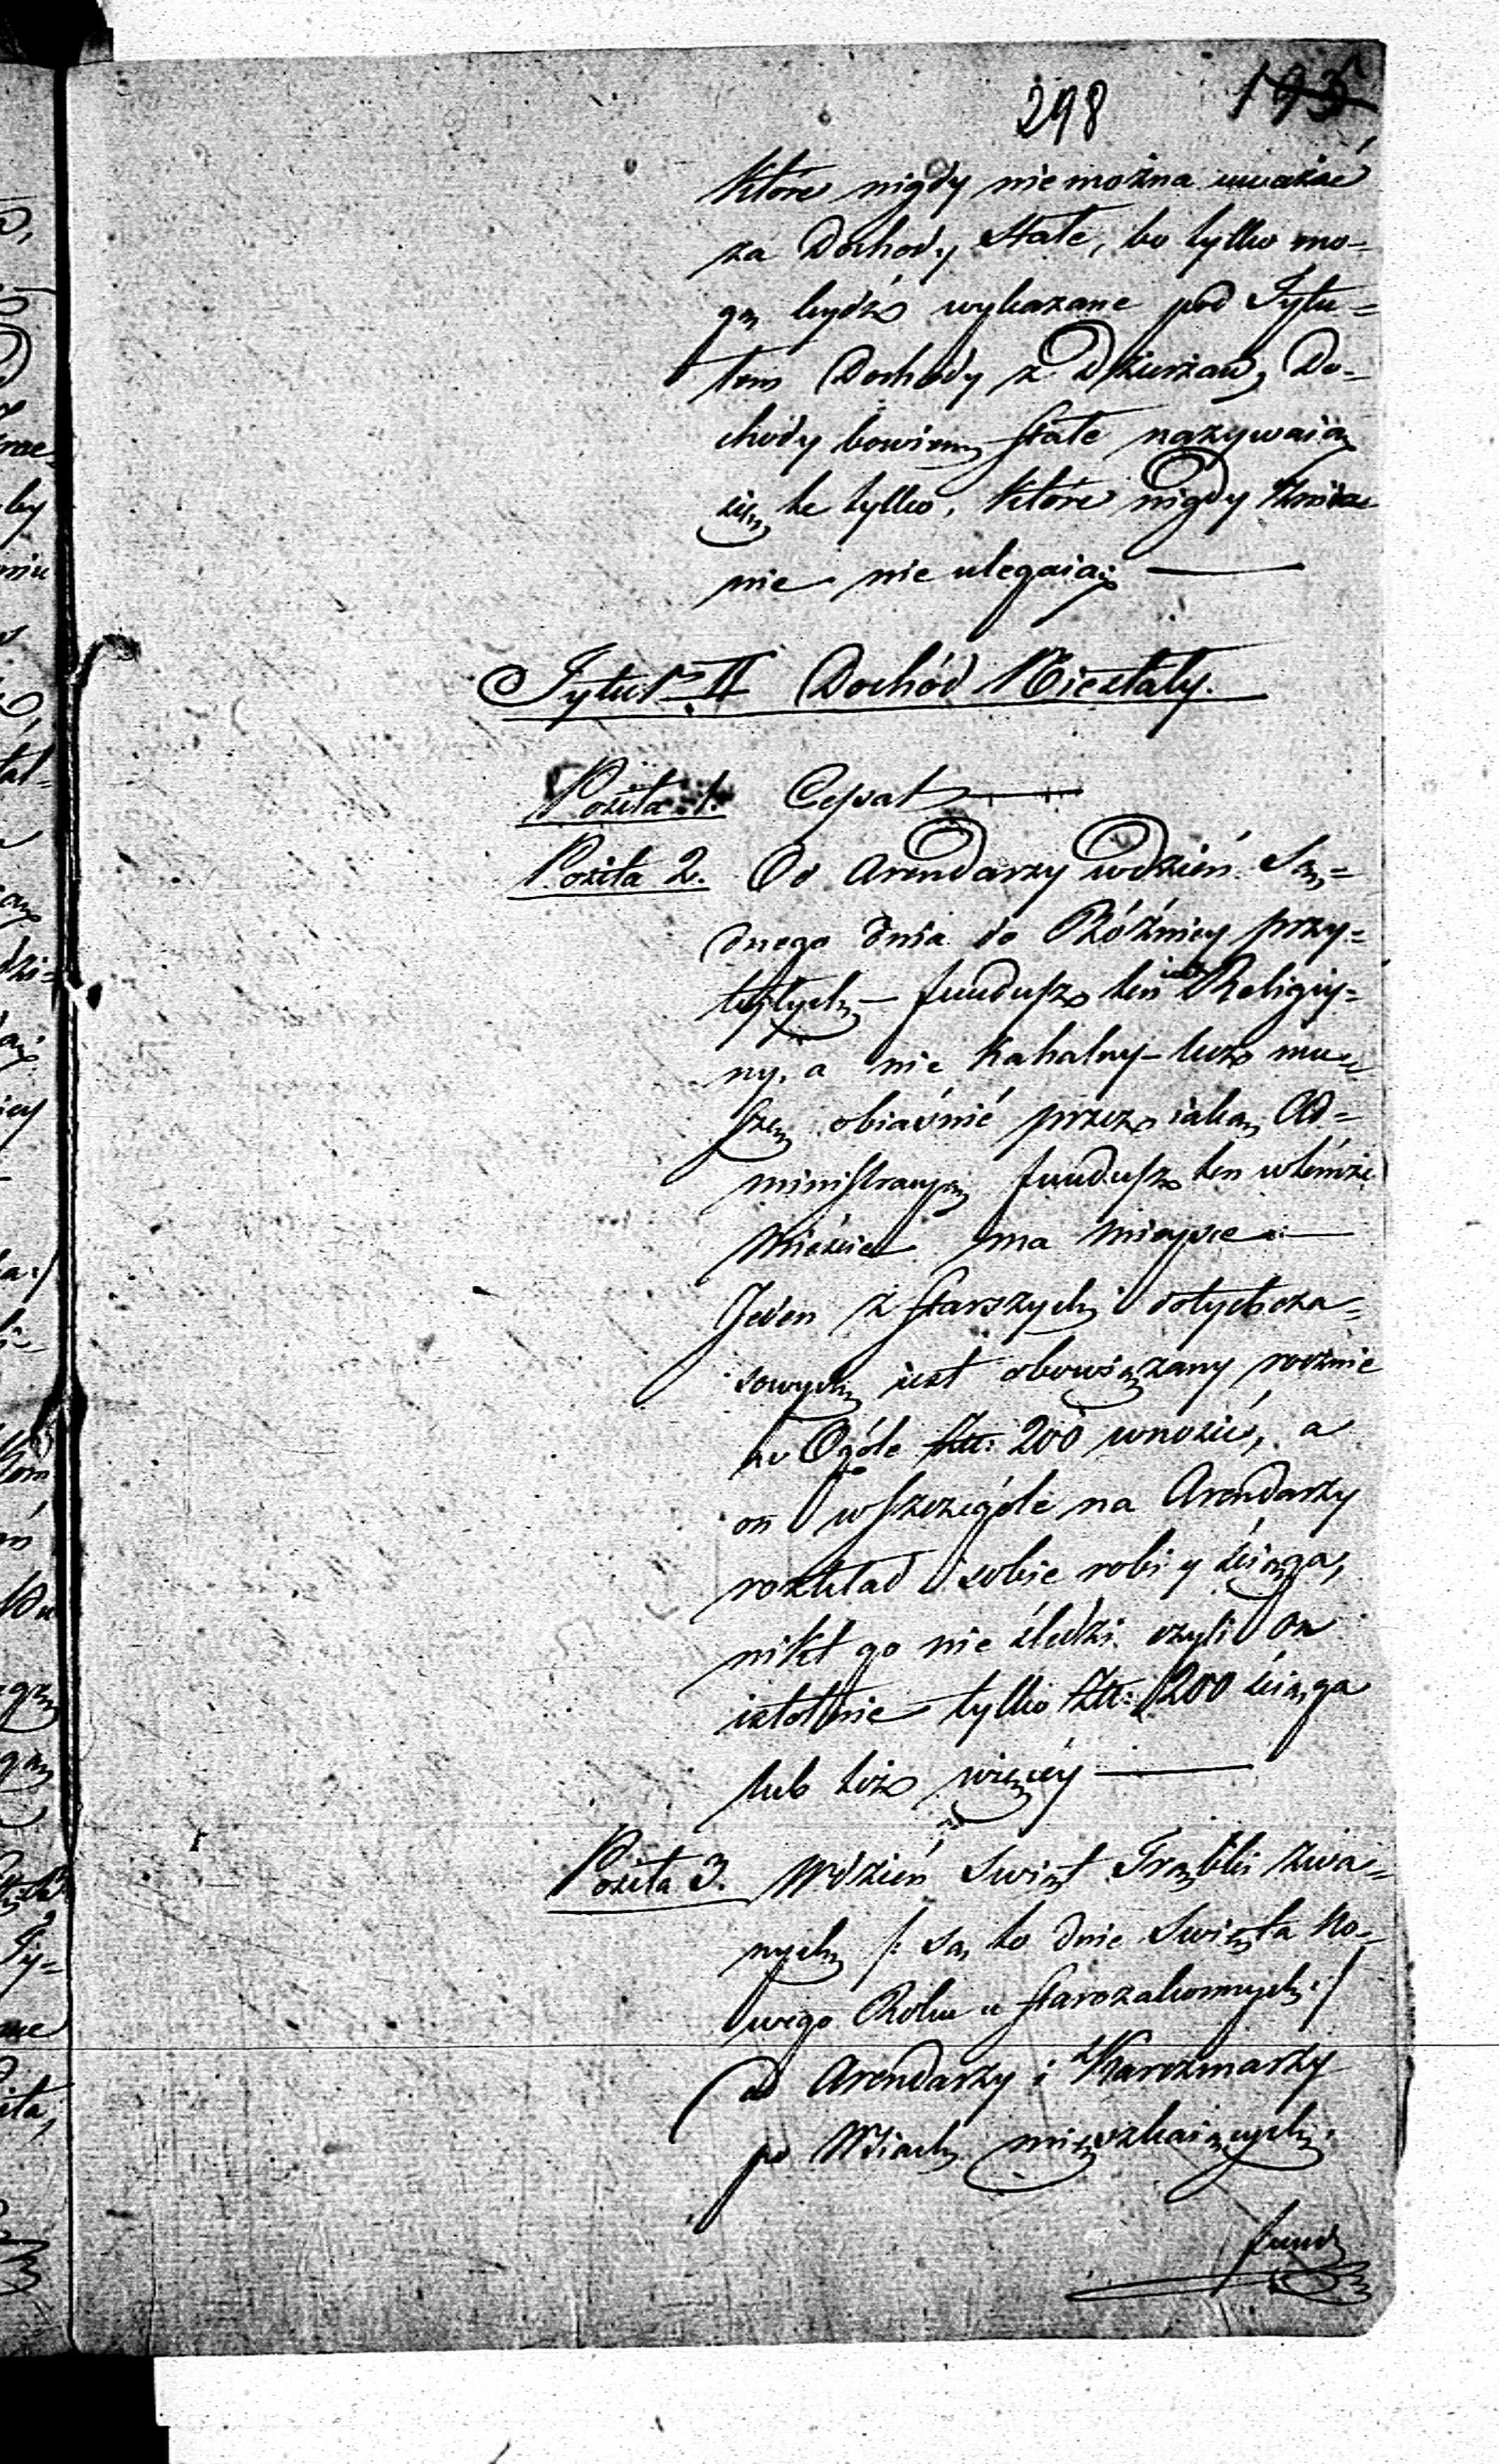 298 195
które nigdy nie można uważać
za Dochody Stałe, bo tylko mo-
gą bydź wykazane pod Tytu-
łem Dochody z Dzierżaw, Do-
chody bowiem stałe nazywaią
się te tylko, które nigdy
nie ulegaią —
Tytuł II Dochód Niestały.
Pozita 1. Cessat —
Pozita 2. Od Arendarzy wdzień Są-
dnego dnia do Bóżnicy przy-
byłych — fundusz ten iest Religiy-
ny, a nie Kahalny — lecz mu-
szę obiaśnić przez iaką Ad-
ministracyią fundusz ten wtémże
Mieście ma mieysce —
Jeden z starszych dotychcza-
sowych iest obowiązany rocznie
w Ogóle Złt: 200 wnosić, a
on wszczególe na Arendarzy
rozkład sobie robi y ściąga,
nikt go nie śledzi czyli on
istotnie tylko Złt: 200 ściąga
lub téż więcéy —
Pozita 3. Wdzień Swiąt Trąbki zwa-
nych /: są to dnie Swięta No-
wego Roku u starozakonnych :/
od Arendarzy i Karczmarzy
po Wsiach mieszkaiących.
fund